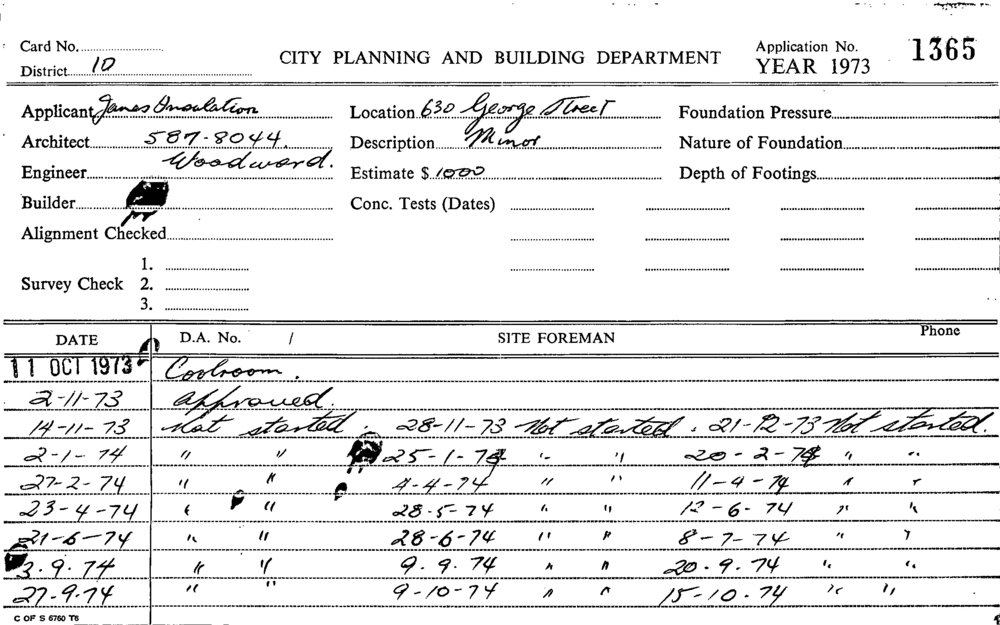 Card No.
CITY PLANNING AND BUILDING DEPARTMENT
Application No. 1365
District 10
YEAR 1973
Applicant James Insulation Location 630 George Street Foundation Pressure
Architect 587-8044. Description Minor Nature of Foundation
Engineer Woodward. Estimate $ 1000 Depth of Footings
Builder Conc. Tests (Dates)
Alignment Checked
1.
Survey Check 2.
3.
DATE D.A. No. / SITE FOREMAN Phone
11 OCT 1973 Coolroom.
2-11-73 approved.
14-11-73 Not started. 28-11-73 Not started. 21-12-73 Not started.
2-1-74 " " 25-1-74 " " 20-2-74 " "
27-2-74 " " 4-4-74 " " 11-4-74 " "
23-4-74 " " 28-5-74 " " 12-6-74 " "
21-6-74 " " 28-6-74 " " 8-7-74 " "
3.9.74 " " 9.9.74 " " 20.9.74 " "
27.9.74 " " 9-10-74 " " 15-10.74 " "
C OF S 6760 T6